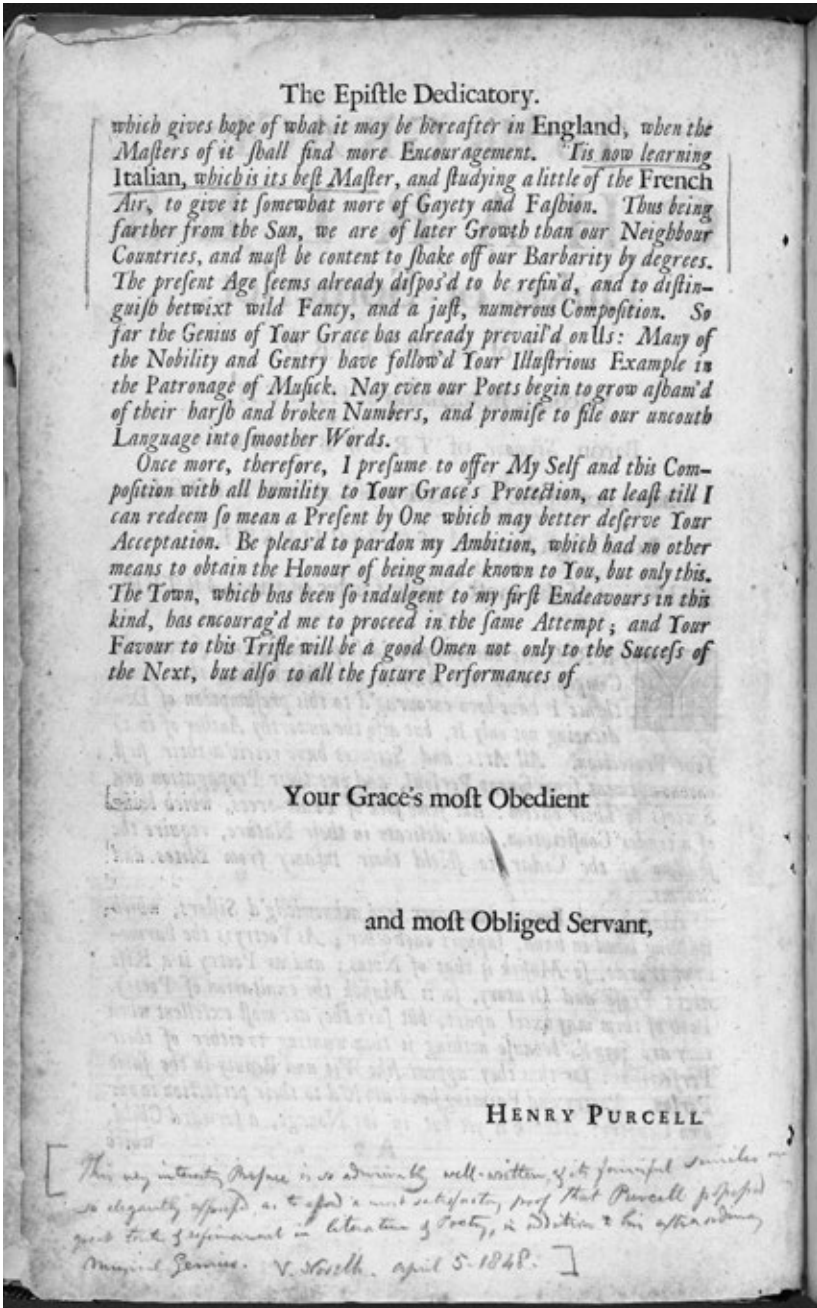 The Epiſtle Dedicatory.
which gives hope of what it may be hereafter in England, when the
Maſters of it ſhall find more Encouragement. 'Tis now learning
Italian, which is its beſt Maſter, and ſtudying a little of the French
Air, to give it ſomewhat more of Gayety and Faſhion. Thus being
farther from the Sun, we are of later Growth than our Neighbour
Countries, and muſt be content to ſhake off our Barbarity by degrees.
The preſent Age ſeems already diſpos'd to be refin'd, and to diſtin-
guiſh betwixt wild Fancy, and a juſt, numerous Compoſition. So
far the Genius of Your Grace has already prevail'd on Us: Many of
the Nobility and Gentry have follow'd Your Illuſtrious Example in
the Patronage of Muſick. Nay even our Poets begin to grow aſham'd
of their harſh and broken Numbers, and promiſe to file our uncouth
Language into ſmoother Words.
Once more, therefore, I preſume to offer My Self and this Com-
poſition with all humility to Your Grace's Protection, at leaſt till I
can redeem ſo mean a Preſent by One which may better deſerve Your
Acceptation. Be pleas'd to pardon my Ambition, which had no other
means to obtain the Honour of being made known to You, but only this.
The Town, which has been ſo indulgent to my firſt Endeavours in this
kind, has encourag'd me to proceed in the ſame Attempt; and Your
Favour to this Trifle will be a good Omen not only to the Succeſs of
the Next, but alſo to all the future Performances of
Your Grace's moſt Obedient
and moſt Obliged Servant,
HENRY PURCELL
[This very interesting Preface is so admirably well-written, & its fanciful similes
so elegantly expressed, as to afford a most satisfactory proof that Purcell possessed
great Taste & refinement in literature & Poetry, in addition to his extraordinary
Musical Genius. V. Novello. april 5. 1848.]